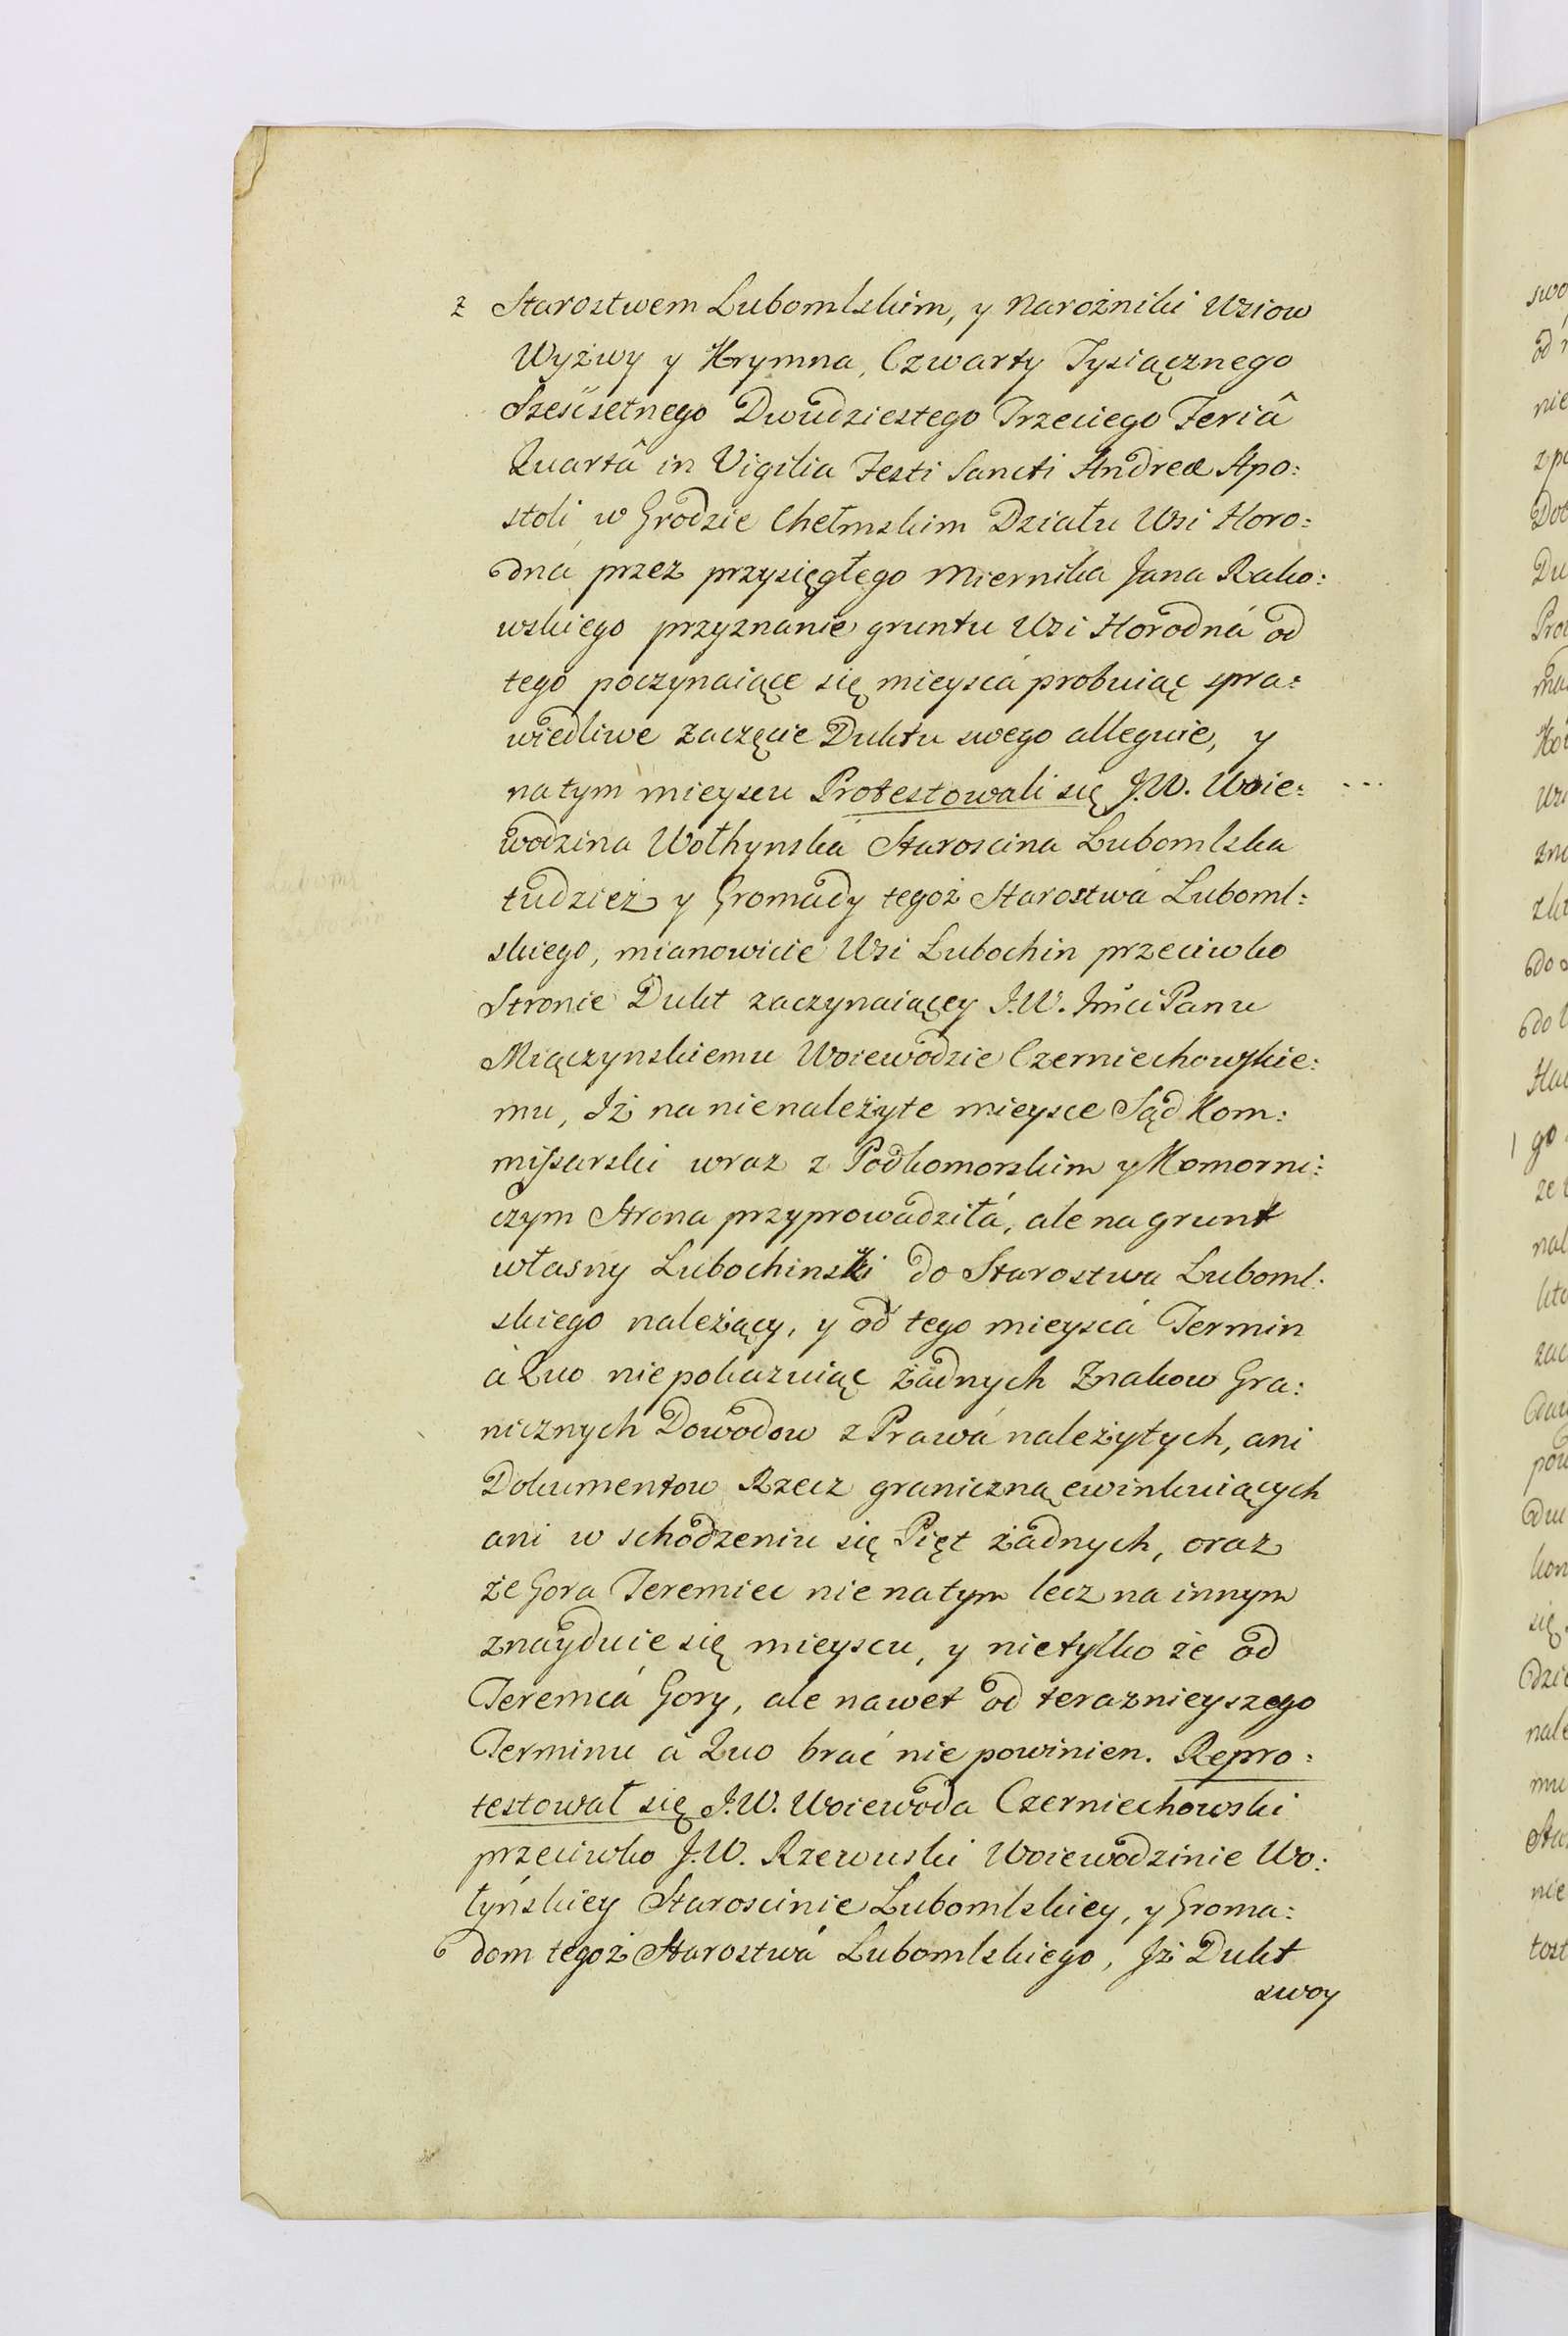 z Starostwem Lubomlskim, y Narożniki Wsiow
Wyżwy y Krymna, Czwarty Tysiącznego
Szescsetnego Dwudziestego Trzeciego Feriâ
Quartâ in Vigilia Festi Sancti Andreæ Apo:
stoli w Grodzie Chełmskim Działu Wsi Horo:
dná przez przysięgłego Miernika Jana Rako:
wskiego przyznanie gruntu Wsi Horodná od
tego poczynaiące się mieyscá probuiąc spra:
wiedliwe zaczęcie Duktu swego alleguie, y
na tym mieyscu Protestowali się J.W. Woie:
wodzina Wołhynská Staroscina Lubomlska
tudzież y Gromady tegoż Starostwá Luboml:
skiego, mianowicie Wsi Lubochin przeciwko
Stronie Dukt zaczynaiącey J.W. Jmci Panu
Miączynskiemu Woiewodzie Czerniechowskie:
mu, Iż na nienależyte mieysce Sąd Kom:
missarski wraz z Podkomorskim y Komorni:
czym Strona przyprowadziłá, ale na grunt
własny Lubochinski do Starostwa Luboml:
skiego należący, y od tego mieyscá Termin
à Quo niepokazuiąc żadnych Znakow Gra:
nicznych Dowodow z Prawá należytych, ani
Dokumentow Rzecz graniczną ewinkuiących
ani w schodzeniu się Pięt żadnych, oraz
że Gora Teremiec nie na tym lecz na innym
znayduie się mieyscu, y nietylko że od
Teremcá Gory, ale nawet od teraznieyszego
Terminu à Quo brać nie powinien. Repro:
testował się J.W. Woiewoda Czerniechowski
przeciwko J.W. Rzewuski Woiewodzinie Wo:
łyńskiey Staroscinie Lubomlskiey, y Groma:
dom tegoż Starostwá Lubomlskiego, Iż Dukt
swoy